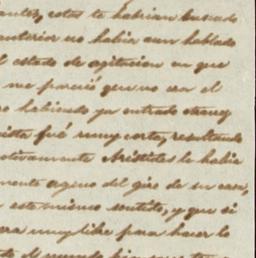 antes, estos te habrian buscado
anterior no habia aun hablado
l estado de agitacion en que
me pareció que no era el
habiendo ya entrado
vista fué muy corta, resultando
ctivamente Aristides le habia
mente ageno del giro de su casa,
este mismo sentido, y que si
era muy libre para hacer lo